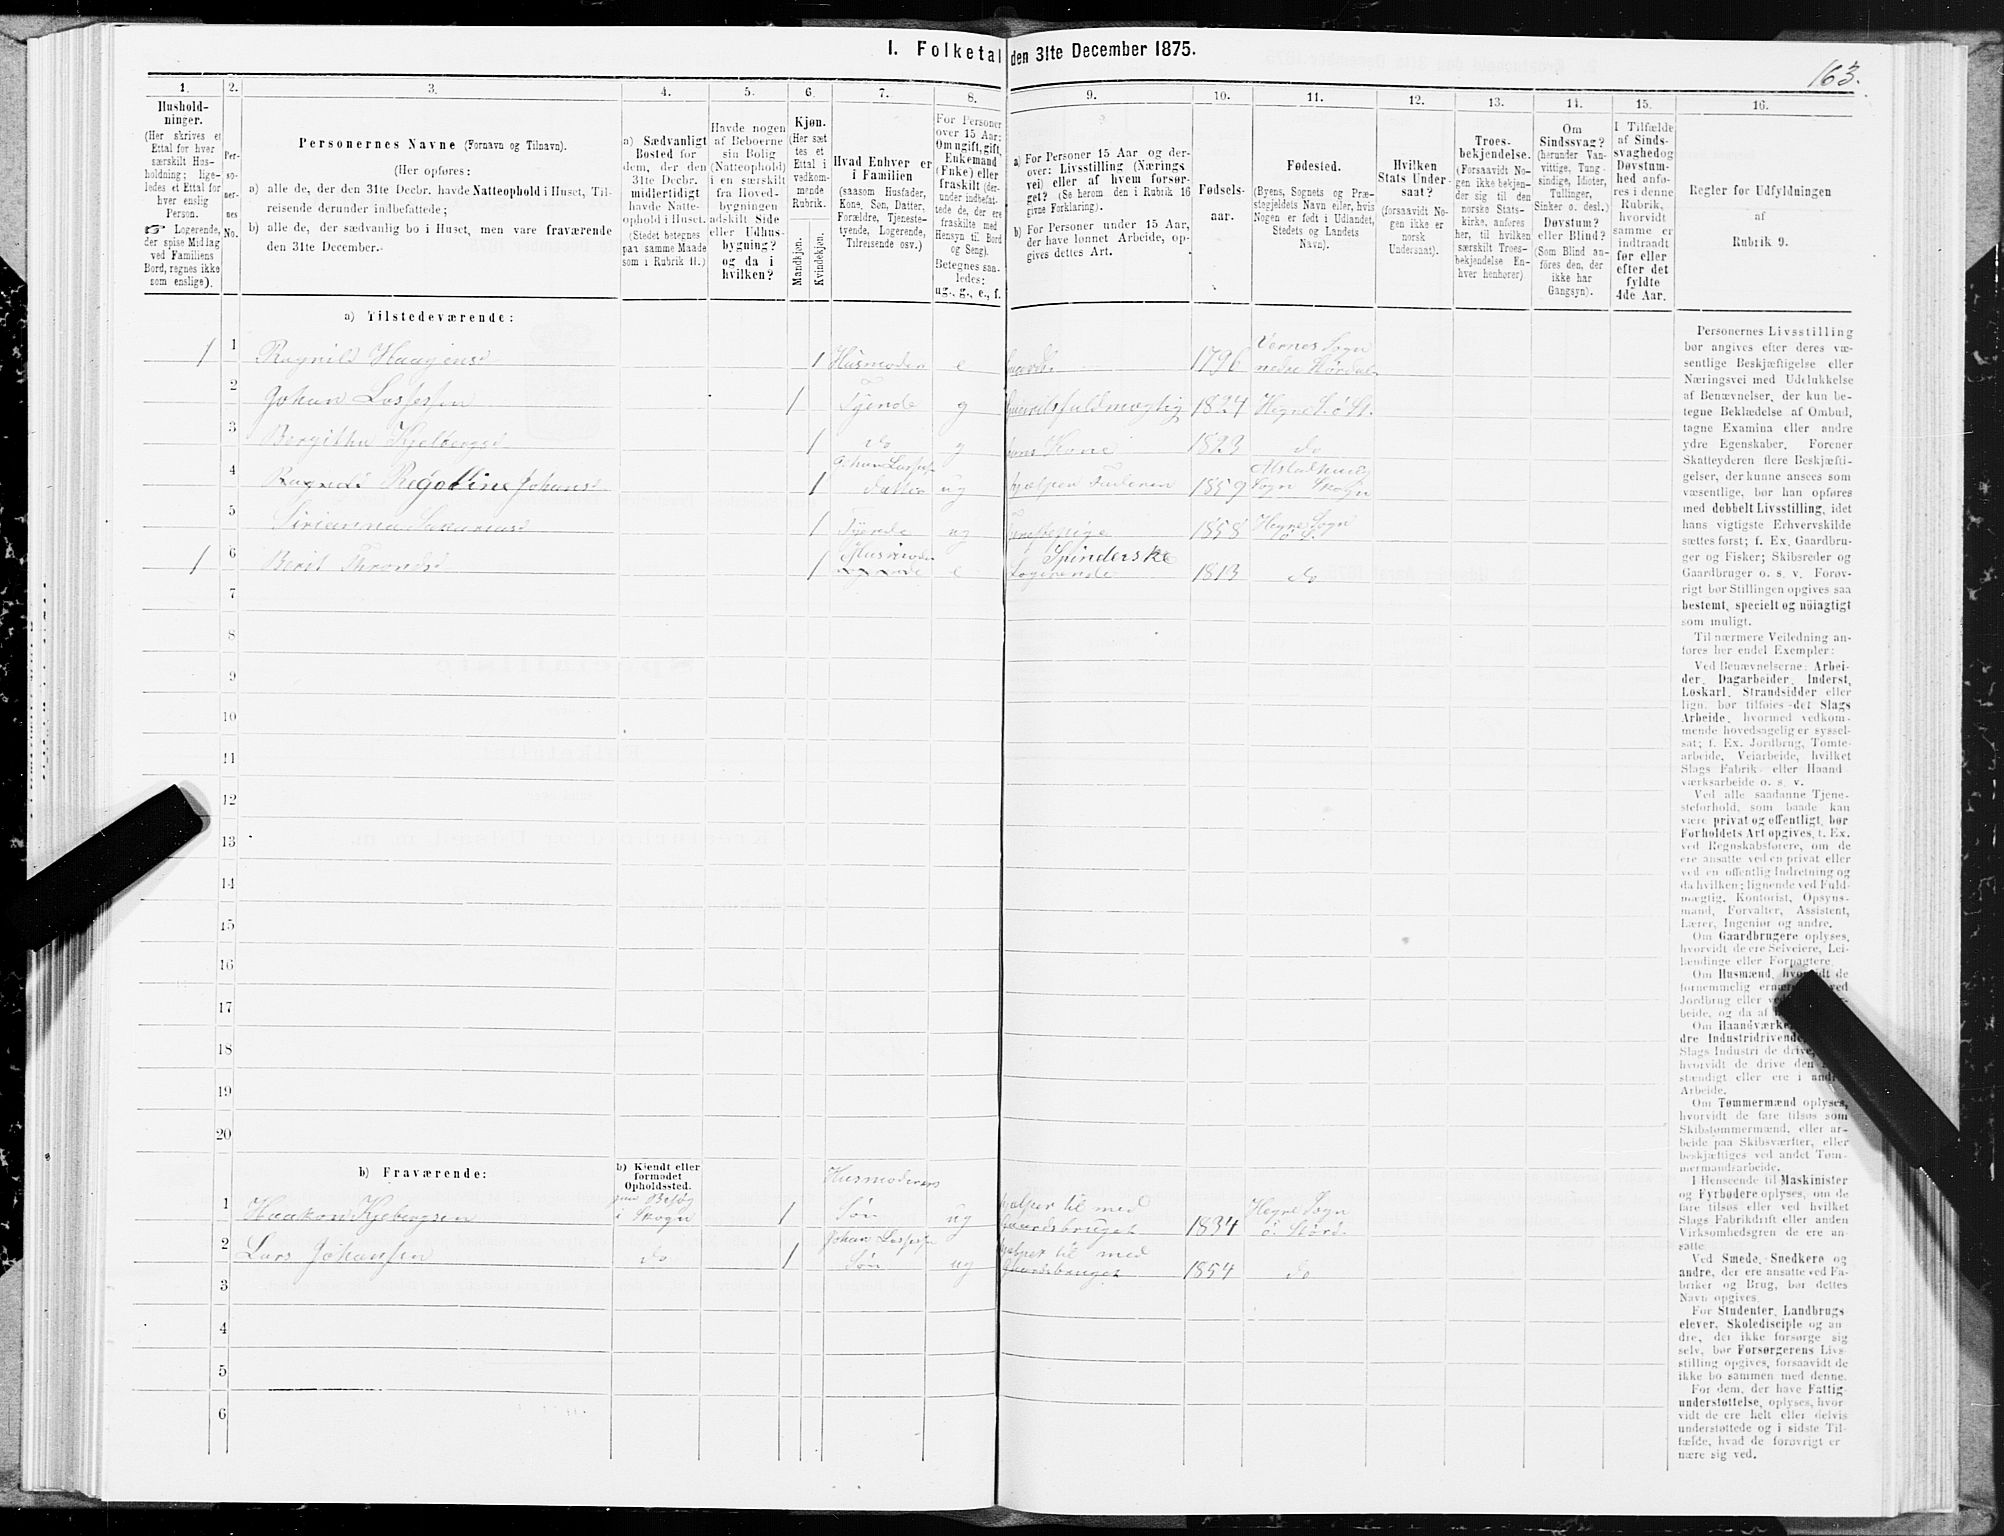 I. Folketal den 31te December 1875.
163.
1.
Hushold-
ninger.
(Her skrives et
Ettal for hver
særskilt Hus-
holdning; lige-
ledes et Ettal for
hver enslig
Person.
☞ Logerende,
der spise Middag
ved Familiens
Bord, regnes ikke
som enslige).
2.
Per-
so-
ner-
nes
No.
3.
Personernes Navne (Fornavn og Tilnavn).
(Her opføres:
a) alle de, der den 31te Decbr. havde Natteophold i Huset, Til-
reisende derunder indbefattede;
b) alle de, der sædvanlig bo i Huset, men vare fraværende
den 31te December.
4.
a) Sædvanligt
Bosted for
dem, der den
31te Decbr.
midlertidigt
havde Natte-
ophold i Huset.
(Stedet betegnes
paa samme Maade
som i Rubrik 11.)
5.
Havde nogen
af Beboerne
sin Bolig
(Natteophold)
i en særskilt
fra Hoved-
bygningen
adskilt Side
eller Udhus-
bygning?
og da i
hvilken?
6.
Kjøn.
(Her sæt-
tes et
Ettal i
vedkom-
mende
Rubrik.
Mandkjøn.
Kvindekjøn.
7.
Hvad Enhver er
i Familien
(saasom Husfader,
Kone, Søn, Datter,
Forældre, Tjeneste-
tyende, Logerende,
Tilreisende osv.)
8.
For Personer
over 15 Aar:
Om ugift, gift,
Enkemand
(Enke) eller
fraskilt (der-
under indbefat-
tede de, der ere
fraskilte med
Hensyn til Bord
og Seng).
Betegnes saa-
ledes:
ug., g., e., f.
9.
a) For Personer 15 Aar og der-
over: Livsstilling (Nærings-
vei) eller af hvem forsør-
get? (Se herom den i Rubrik 16
givne Forklaring).
b) For Personer under 15 Aar,
der have lønnet Arbeide, op-
gives dettes Art.
10.
Fødsels-
aar.
11.
Fødested.
(Byens, Sognets og Præ-
stegjeldets Navn eller, hvis
Nogen er født i Udlandet,
Stedets og Landets
Navn).
12.
Hvilken
Stats Under-
saat?
(forsaavidt No-
gen ikke er
norsk
Undersaat).
13.
Troes-
bekjendelse.
(Forsaavidt No-
gen ikke bekjen-
der sig til den
norske Stats-
kirke, anføres
her, til hvilken
særskilt Troes-
bekjendelse En-
hver henhører)
14.
Om
Sindssvag?
(herunder Van-
vittige, Tung-
sindige, Idioter,
Tullinger,
Sinker o. desl.)
Døvstum?
eller Blind?
(Som Blind an-
føres den, der
ikke har
Gangsyn).
15.
I Tilfælde
af Sinds-
svaghed og
Døvstum-
hed anfø-
res i denne
Rubrik,
hvorvidt
samme er
indtraadt
før eller
efter det
fyldte
4de Aar.
16.
Regler for Udfyldningen
af
Rubrik 9.
a) Tilstedeværende:
1 1 Ragnild Haagensd 1 Husmoder e 1796 Værnes Sogn nedre Stördal
2 Johan Lassessen 1 Tyende g 1824 Hegre S. ö. St.
3 Bergitha Kjelbergsd 1 do g hans Kone 1823 do
4 Regoline Johansd 1 Johan Lassess Datter ug hjælper Faderen 1859 Alstadhaug Sogn Skogn
5 1 Tyende ug 1858 Hegre Sogn
1 6 Berit Throndsd 1 Husmoder e Spinderske Logerende 1813 do
7
8
9
10
11
12
13
14
15
16
17
18
19
20
b) Fraværende:
b) Kjendt eller
formodet
Opholdssted.
1 Haakon Kjebergsen paa Besøg i Skogn 1 Husmoderens Søn ug hjælper til med Gaardsbruget 1834 Hegre Sogn ö. Störd.
2 Lars Johanssen do 1 Johan Lassess Søn ug hjælper til med Gaardsbruget 1854 do
3
4
5
6
Personernes Livsstilling
bør angives efter deres væ-
sentlige Beskjæftigelse eller
Næringsvei med Udelukkelse
af Benævnelser, der kun be-
tegne Beklædelse af Ombud,
tagne Examina eller andre
ydre Egenskaber. Forener
Skatteyderen flere Beskjæfti-
gelser, der kunne ansees som
væsentlige, bør han opføres
med dobbelt Livsstilling, idet
hans vigtigste Erhvervskilde
sættes først; f. Ex. Gaardbru-
ger og Fisker; Skibsreder og
Gaardbruger o. s. v. Forøv-
rigt bør Stillingen opgives saa
bestemt, specielt og nöiagtigt
som muligt.
Til nærmere Veiledning an-
føres her endel Exempler:
Ved Benævnelserne: Arbei-
der, Dagarbeider, Inderst,
Løskarl, Strandsidder eller
lign. bør tilføies det Slags
Arbeide, hvormed vedkom-
mende hovedsagelig er syssel-
sat; f. Ex. Jordbrug, Tomte-
arbeide, Veiarbeide, hvilket
Slags Fabrik- eller Haand-
værksarbeide o. s. v.
Ved alle saadanne Tjene-
steforhold, som baade kan
være privat og offentligt, bør
Forholdets Art opgives, f. Ex.
ved Regnskabsførere, om de
ere ansatte ved en privat eller
ved en offentlig Indretning og
da hvilken; lignende ved Fuld-
mægtig, Kontorist, Opsyns-
mand, Forvalter, Assistent,
Lærer, Ingeniør og andre.
Om Gaardbrugere oplyses,
hvorvidt de ere Selveiere, Lei-
lændinge eller Forpagtere.
Om Husmænd, hvorvidt de
fornemmelig ernære sig ved
Jordbrug eller ved
beide, og da af
Om Haandværkere
dre Industridrivende,
Slags Industri de drive,
hvorvidt de drive den
stændigt eller ere i andres
Arbeide.
Om Tømmermænd oplyses,
hvorvidt de fare tilsøs som
Skibstømmermænd, eller ar-
beide paa Skibsværfter, eller
beskjæftiges ved andet Tøm-
mermandsarbeide.
I Henseende til Maskinister
og Fyrbødere oplyses, om de
fare tilsøs eller ved hvilket
Slags Fabrikdrift eller anden
Virksomhedsgren de ere an-
satte.
Ved Smede, Snedkere og
andre, der ere ansatte ved Fa-
briker og Brug, bør dettes
Navn opgives.
For Studenter, Landbrugs-
elever, Skoledisciple og an-
dre, der ikke forsørge sig
selv, bør Forsørgerens Livs-
stilling opgives, forsaavidt de
ikke bo sammen med denne.
For dem, der have Fattig-
understøttelse, oplyses, hvor-
vidt de ere helt eller delvis
understøttede og i sidste Til-
fælde, hvad de forøvrigt er-
nære sig ved.